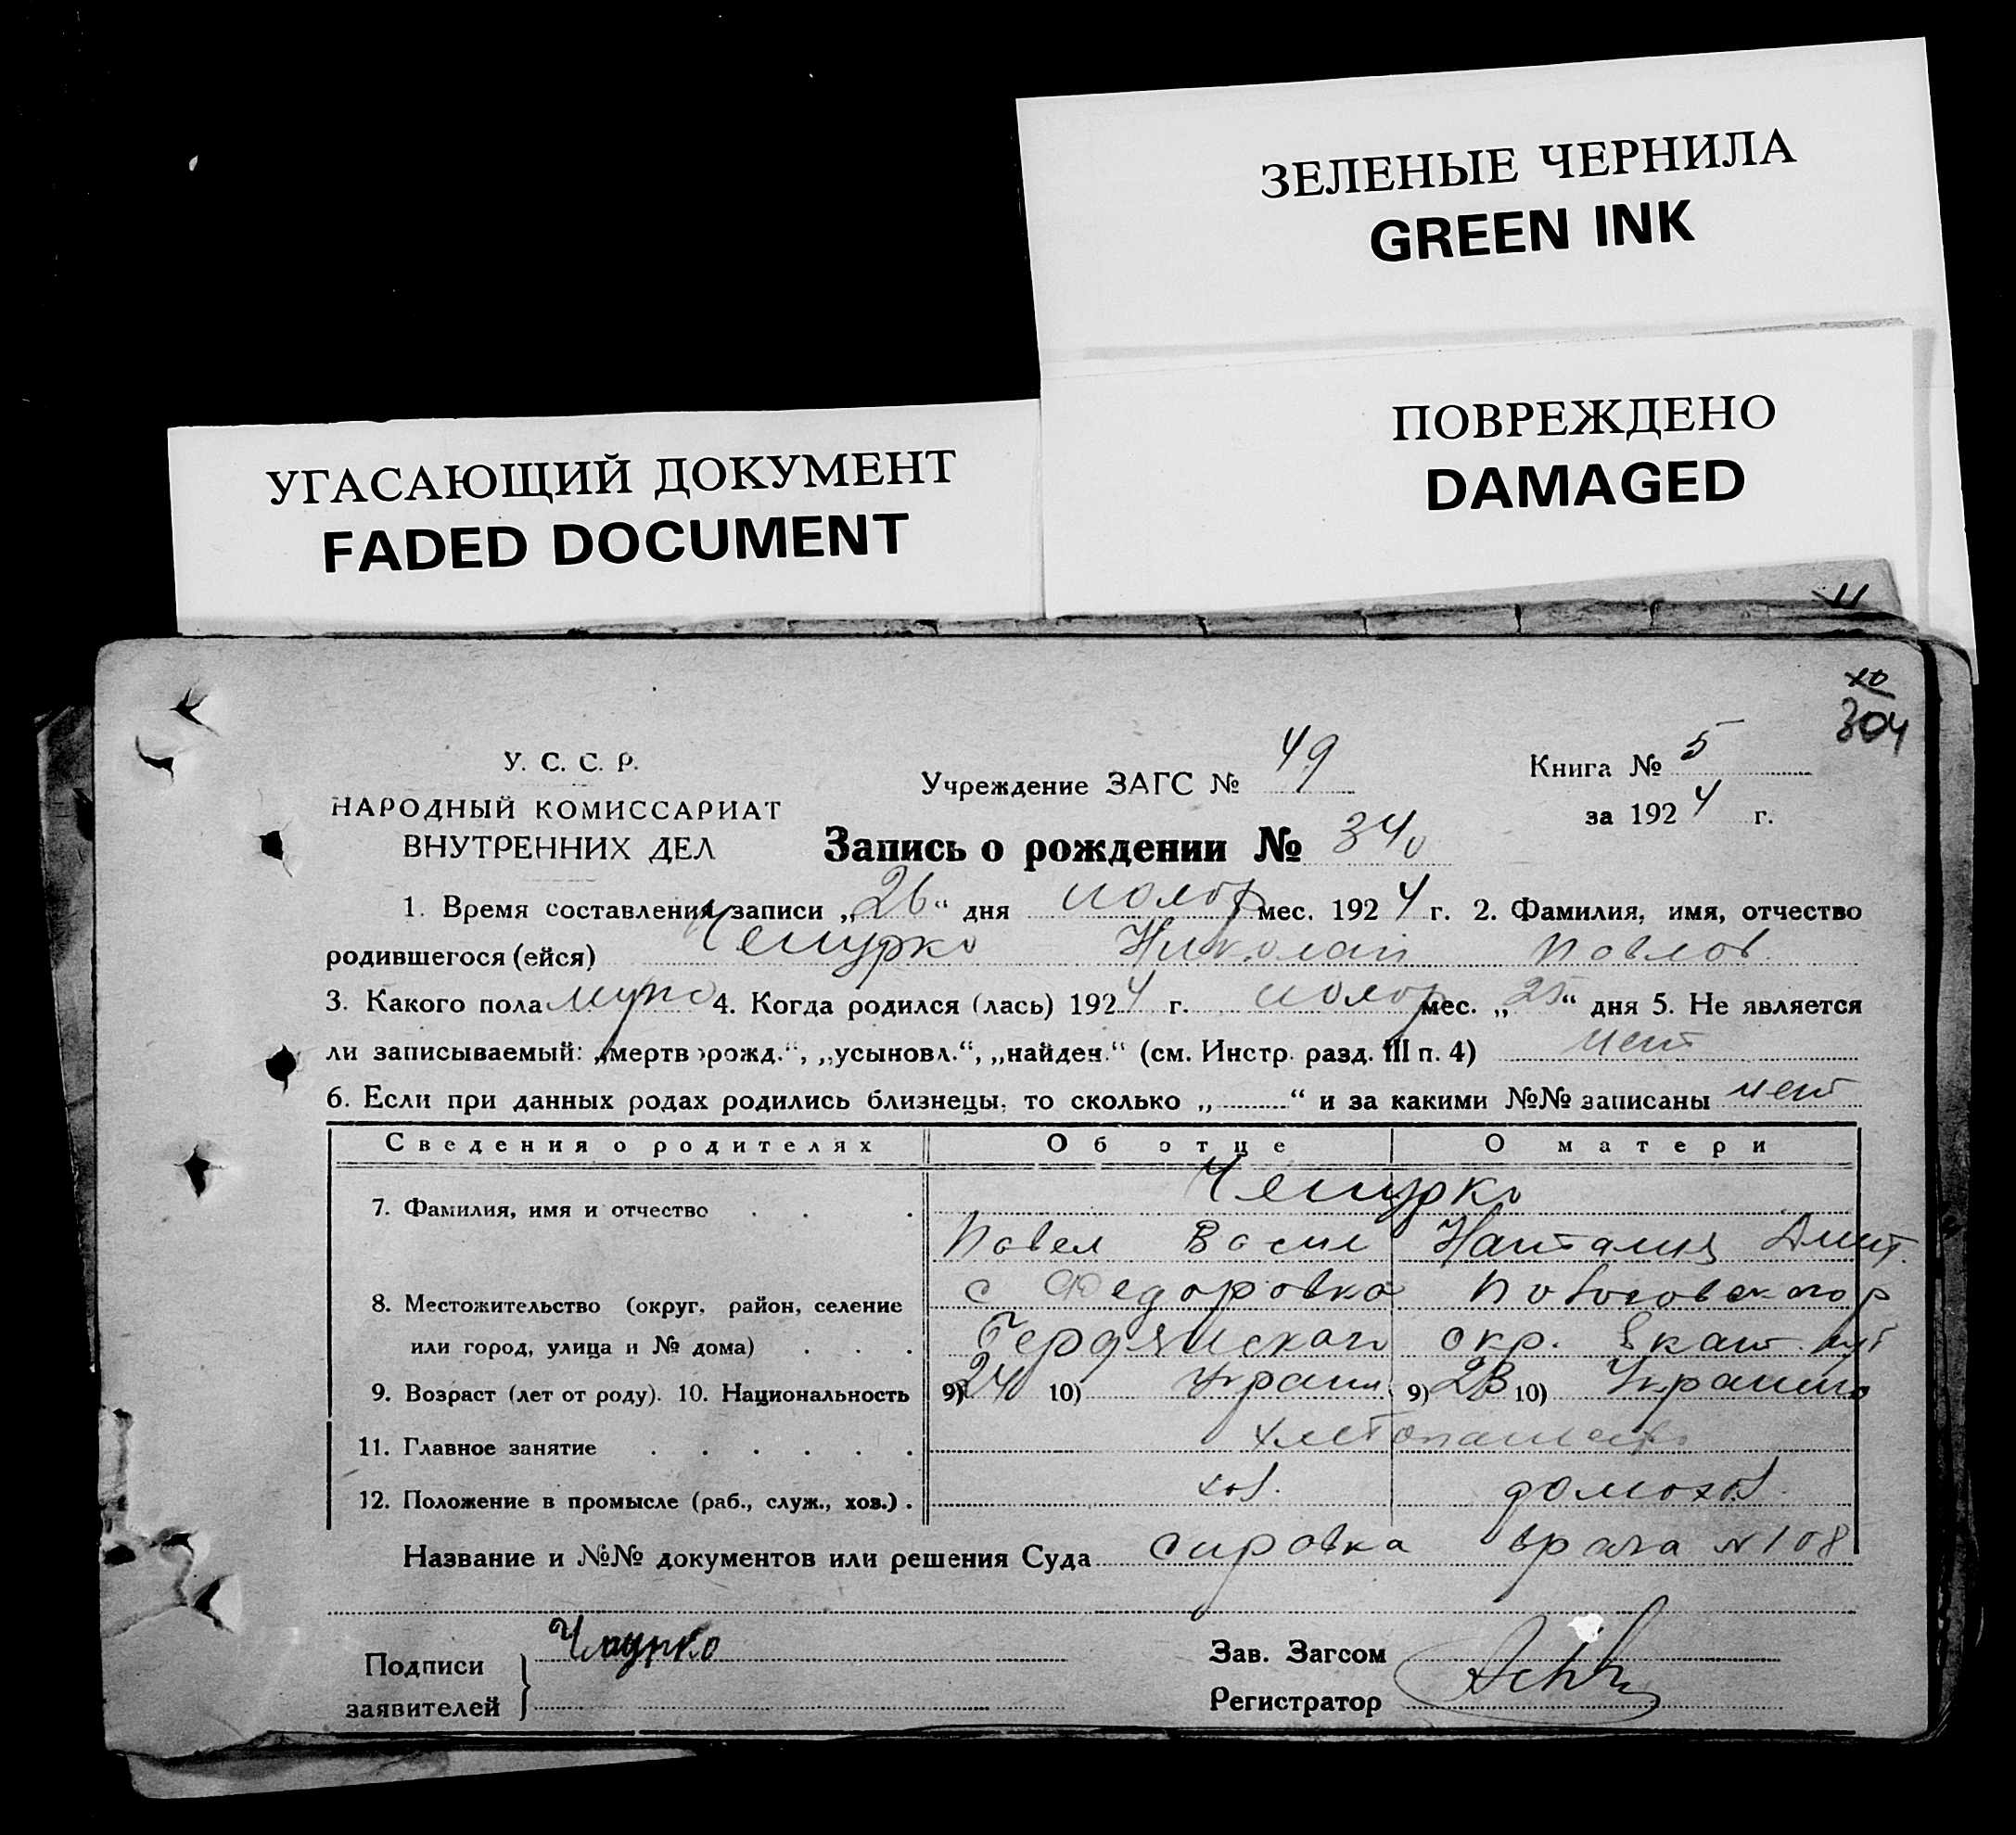 ЗЕЛЕНЫЕ ЧЕРНИЛА
GREEN INK
ПОВРЕЖДЕНО
DAMAGED
УГАСАЮЩИЙ ДОКУМЕНТ
FADED DOCUMENT
304
У. С. С. Р.
НАРОДНЫЙ КОМИССАРИАТ
ВНУТРЕННИХ ДЕЛ
Учреждение ЗАГС № 49
Книга № 5
за 1924 г.
Запись о рождении № 340
1. Время составления записи „26“ дня ноябр мес. 1924 г. 2. Фамилия, имя, отчество
родившегося (ейся) Чемурко Николай Павлов
3. Какого пола 4. Когда родился (лась) 1924 г. ноябр мес. „25“ дня 5. Не является
ли записываемый: „мертворожд.“, „усыновл.“, „найден.“ (см. Инстр. разд. III п. 4) нет
6. Если при данных родах родились близнецы, то сколько „ “ и за какими №№ записаны нет
Сведения о родителях Об отце О матери
7. Фамилия, имя и отчество Чемурко
Павел Васил Наталия Дмит.
8. Местожительство (округ, район, селение с Федоровка
или город, улица и № дома) Бердянского окр. Екат. губ
9. Возраст (лет от роду). 10. Национальность 9) 24 10) Украин 9) 23 10) Украинка
11. Главное занятие хлебопашество
12. Положение в промысле (раб., служ., хоз.) хоз. домохоз.
Название и №№ документов или решения Суда справка врача № 108
Подписи Чмурко
заявителей
Зав. Загсом
Регистратор